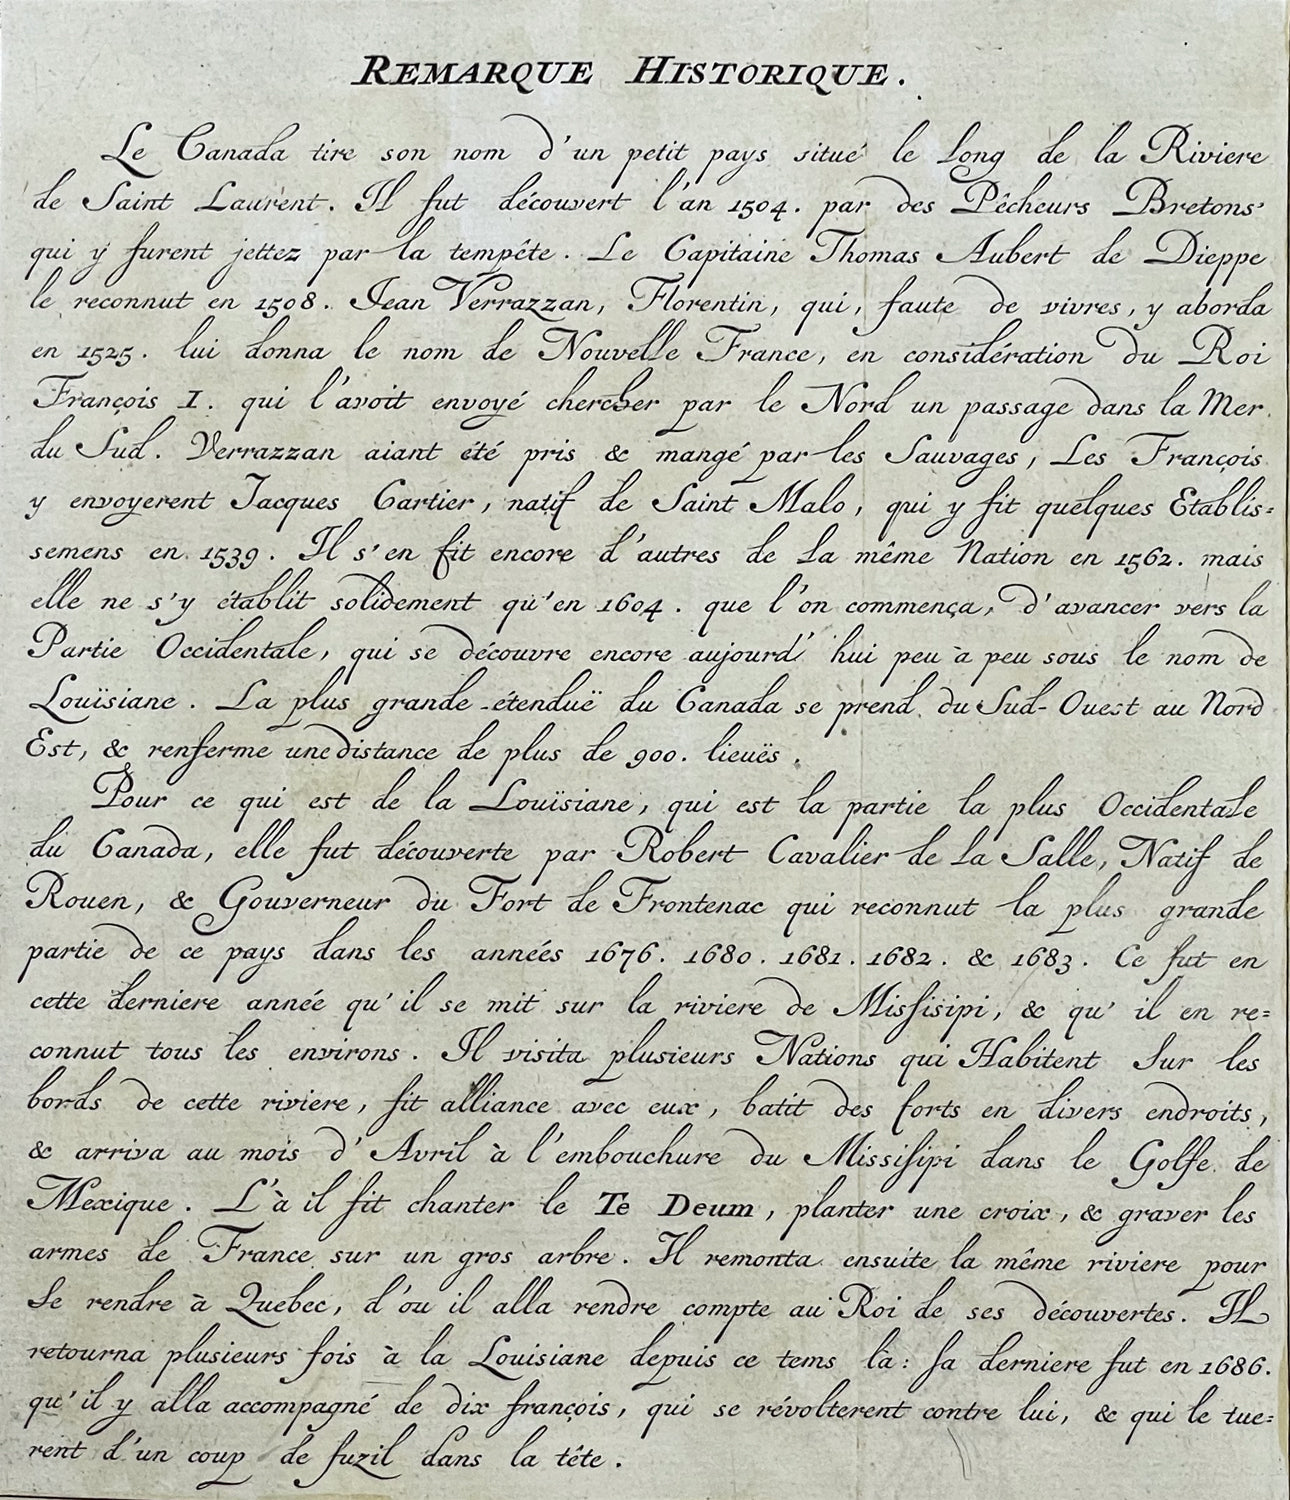 REMARQUE HISTORIQUE.
Le Canada tire son nom d'un petit pays situé le long de la Riviere
de Saint Laurent. Il fut découvert l'an 1504. par des Pêcheurs Bretons
qui y furent jettez par la tempête. Le Capitaine Thomas Aubert de Dieppe
le reconnut en 1508. Jean Verrazzan, Florentin, qui, faute de vivres, y aborda
en 1525. lui donna le nom de Nouvelle France, en considération du Roi
François I. qui l'avoit envoyé chercher par le Nord un passage dans la Mer
du Sud. Verrazzan aiant été pris & mangé par les Sauvages, Les François
y envoyerent Jacques Cartier, natif de Saint Malo, qui y fit quelques Etablis=
semens en 1539. Il s'en fit encore d'autres de la même Nation en 1562. mais
elle ne s'y établit solidement qu'en 1604. que l'on commença, d'avancer vers la
Partie Occidentale, qui se découvre encore aujourd'hui peu à peu sous le nom de
Louïsiane. La plus grande étenduë du Canada se prend du Sud-Ouest au Nord
Est, & renferme une distance de plus de 900. lieuës.
Pour ce qui est de la Louïsiane, qui est la partie la plus Occidentale
du Canada, elle fut découverte par Robert Cavalier de la Salle, Natif de
Rouen, & Gouverneur du Fort de Frontenac qui reconnut la plus grande
partie de ce pays dans les années 1676. 1680. 1681. 1682. & 1683. Ce fut en
cette derniere année qu'il se mit sur la riviere de Missisipi, & qu'il en re=
connut tous les environs. Il visita plusieurs Nations qui Habitent sur les
bords de cette riviere, fit alliance avec eux, batit des forts en divers endroits,
& arriva au mois d'Avril à l'embouchure du Missisipi dans le Golfe de
Mexique. L'à il fit chanter le Te Deum, planter une croix, & graver les
armes de France sur un gros arbre. Il remonta ensuite la même riviere pour
se rendre à Quebec, d'ou il alla rendre compte au Roi de ses découvertes. Il
retourna plusieurs fois à la Louisiane depuis ce tems là: sa derniere fut en 1686.
qu'il y alla accompagné de dix françois, qui se révolterent contre lui, & qui le tue=
rent d'un coup de fuzil dans la tête.